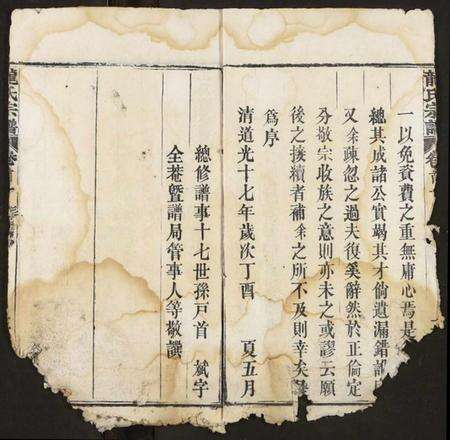 龍氏宗譜
一以免資費之重無庸心焉是
總其成諸公實竭其才倘遺漏錯
又余疎忽之過夫復奚辭然於正倫定
分敬宗收族之意則亦未之或謬云願
後之接續者補余之所不及則幸矣
為序
清道光十七年歲次丁酉 夏五月
總修譜事十七世孫戶首 斌宇
全菴暨譜局管事人等敬譔
龍氏宗譜